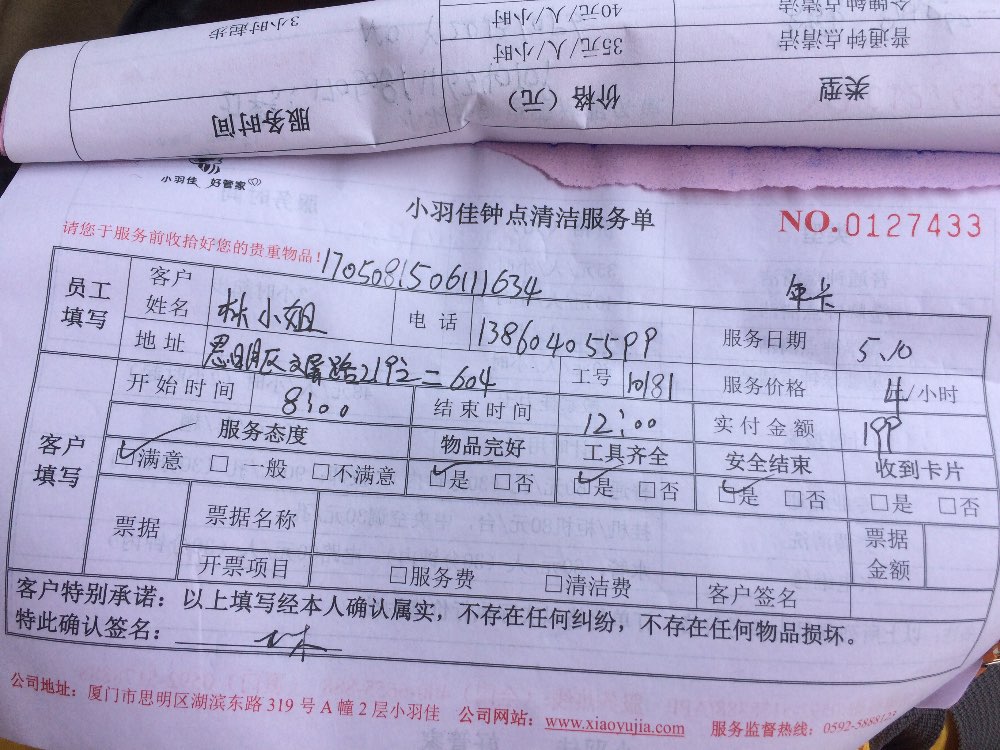 3小时起步
40元/人/小时
金牌钟点清洁
35元/人/小时
普通钟点清洁
服务时间
价格（元）
类型
小羽佳 好管家
小羽佳钟点清洁服务单
NO.0127433
请您于服务前收拾好您的贵重物品！
1705081506111634
年卡
员工填写
客户姓名
林小姐
电话
13860405599
服务日期
5.10
地址
思明区文屏路219之二604
工号
10181
服务价格
4/小时
开始时间
8:00
结束时间
12:00
实付金额
199
客户填写
服务态度
物品完好
工具齐全
安全结束
收到卡片
☑满意 □一般 □不满意
☑是 □否
☑是 □否
☑是 □否
□是 □否
票据
票据名称
票据金额
开票项目
□服务费 □清洁费
客户签名
客户特别承诺：以上填写经本人确认属实，不存在任何纠纷，不存在任何物品损坏。
特此确认签名： 林
公司地址：厦门市思明区湖滨东路 319 号 A 幢 2 层小羽佳 公司网站：www.xiaoyujia.com 服务监督热线：0592-5888123